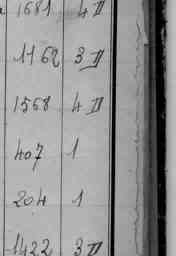 1681 4 II
1162 3 II
1568 4 II
407 1
204 1
1422 3 II